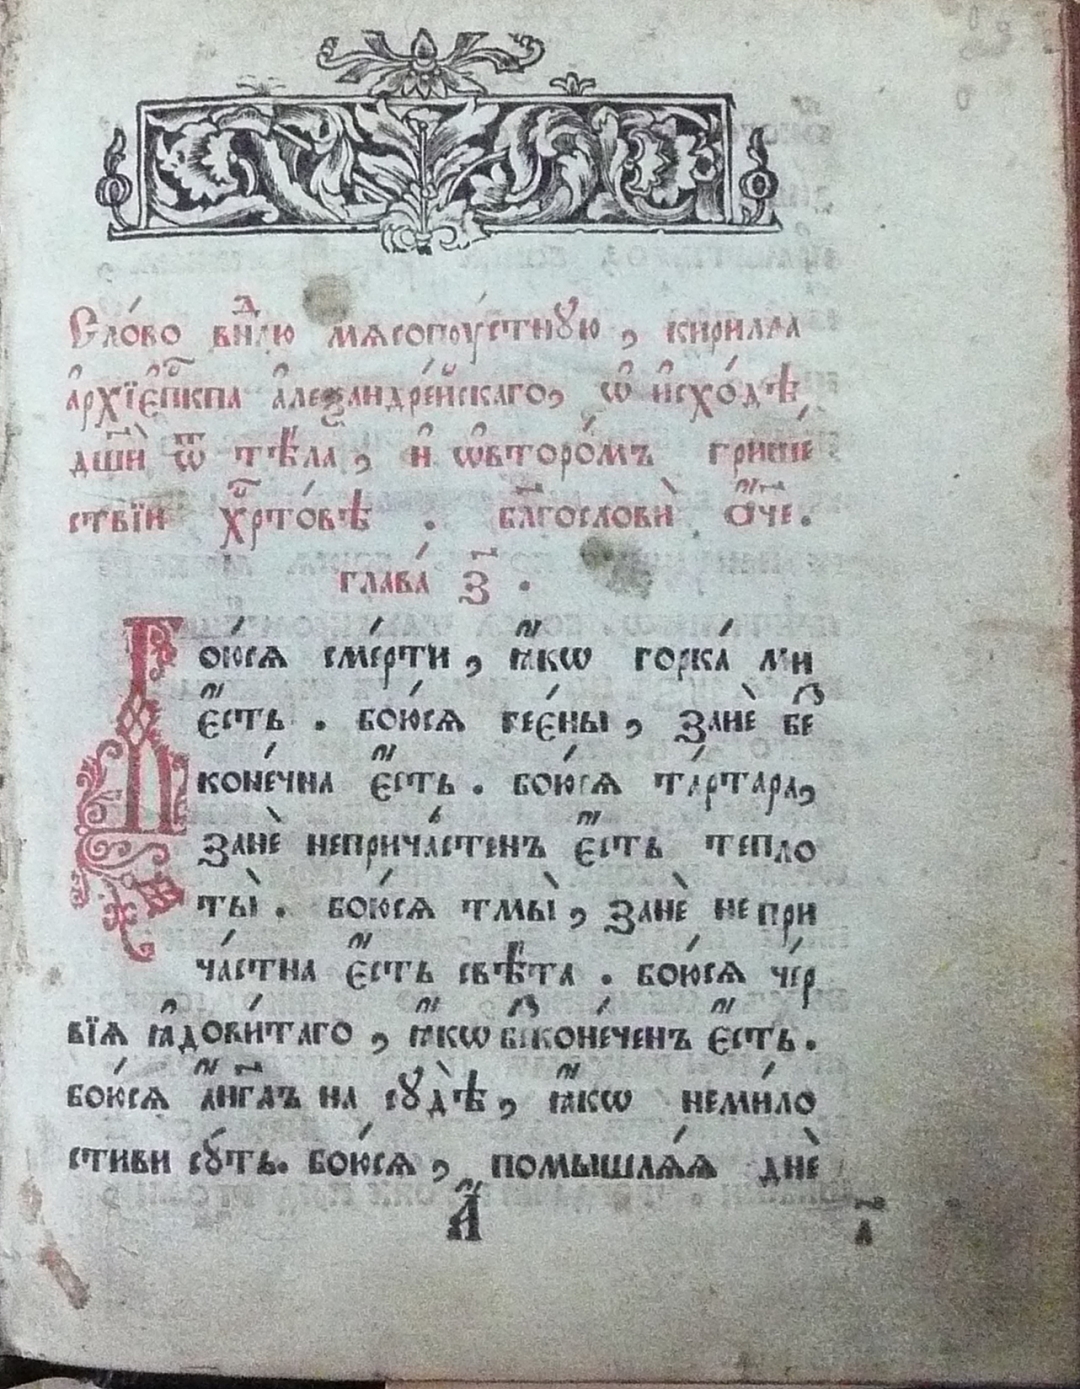 Сло́во внⷣлю мѧсопоу́стнꙋю, кирилла
а҆рхїе҆пⷭ҇кпа а҆леѯандре́йскаго, ѡ҆ и҆схо́дѣ
дш҃ѝ ѿ тѣ́ла, и҆ ѡ҆второ́мъ прише́
ствїи хрⷭ҇то́вѣ . бл҃гословѝ ѻ҆́ч҃е.
глава́ з҃ .
Бою́сѧ сме́рти, ꙗ҆́кѡ горка́ ми
є҆́сть . бою́сѧ гее́ны, занѐ беⷥ
коне́чна є҆́сть . бою́сѧ та́ртара,
занѐ неприча́стенъ є҆́сть тепло
ты̀ . бою́сѧ тмы̀, занѐ непри
ча́стна є҆́сть свѣ́та . бою́сѧ че́р
вїѧ ꙗ҆дови́таго, ꙗ҆́кѡ беⷥконе́ченъ є҆́сть .
бою́сѧ а҆́нг҃лъ на сꙋдѣ̀, ꙗ҆́кѡ неми́ло
стиви сꙋ́ть. бою́сѧ, помышлѧ́ѧ днѐ
а҃